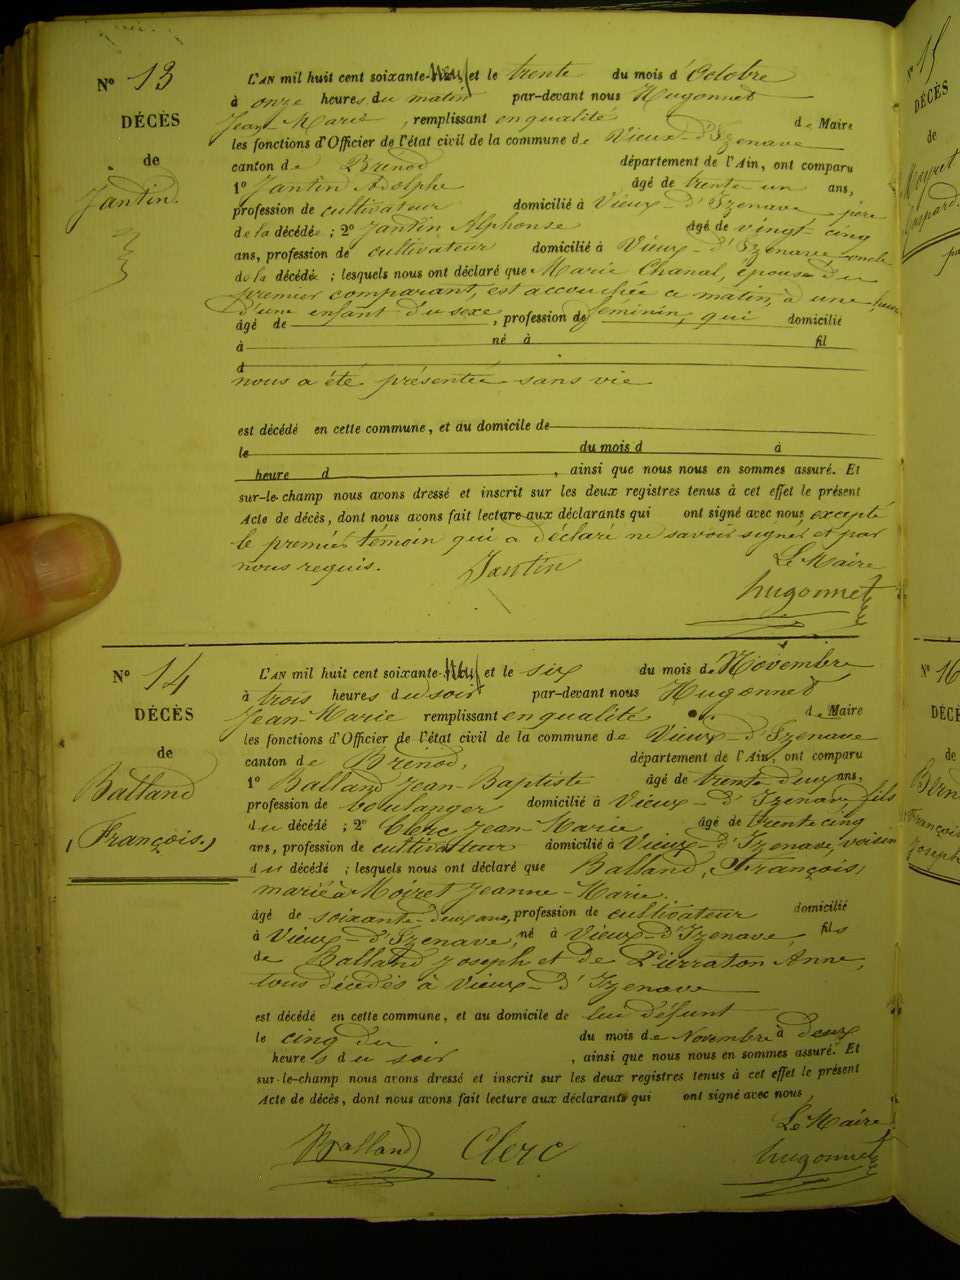 N° 13
DÉCÈS
de
Jantin.
L'AN mil huit cent soixante-neuf et le trente du mois d'Octobre
à onze heures du matin par-devant nous Hugonnet
Jean-Marie, remplissant en qualité de Maire
les fonctions d'Officier de l'état civil de la commune de Vieux-d'Izenave
canton de Brénod département de l'Ain, ont comparu
1° Jantin Adolphe âgé de trente-un ans,
profession de cultivateur domicilié à Vieux-d'Izenave, père
de la décédée ; 2° Jantin Alphonse âgé de vingt-cinq
ans, profession de cultivateur domicilié à Vieux-d'Izenave oncle
de la décédée ; lesquels nous ont déclaré que Marie Chanal, épouse du
premier comparant, est accouchée ce matin, à une heure
d'une enfant du sexe féminin, qui
âgé de , profession de domicilié
à né à fil
d
nous a été présentée sans vie
est décédé en cette commune, et au domicile de
le du mois d à
heure d , ainsi que nous nous en sommes assuré. Et
sur-le-champ nous avons dressé et inscrit sur les deux registres tenus à cet effet le présent
Acte de décès, dont nous avons fait lecture aux déclarants qui ont signé avec nous excepté
le premier témoin qui a déclaré ne savoir signer et par
nous requis. Jantin Le Maire
hugonnet
N° 14
DÉCÈS
de
Balland
(François.)
L'AN mil huit cent soixante-neuf et le six du mois de Novembre
à trois heures du soir par-devant nous Hugonnet
Jean-Marie remplissant en qualité de Maire
les fonctions d'Officier de l'état civil de la commune de Vieux-d'Izenave
canton de Brénod, département de l'Ain, ont comparu
1° Balland Jean-Baptiste âgé de trente-deux ans,
profession de boulanger domicilié à Vieux-d'Izenave fils
du décédé ; 2° Clerc Jean-Marie âgé de trente cinq
ans, profession de cultivateur domicilié à Vieux-d'Izenave, voisin
du décédé ; lesquels nous ont déclaré que Balland, François,
marié à Moiret Jeanne-Marie.
âgé de soixante-deux ans, profession de cultivateur domicilié
à Vieux-d'Izenave, né à Vieux-d'Izenave, fils
de Balland Joseph et de Pierraton Anne,
tous décédés à Vieux-d'Izenave
est décédé en cette commune, et au domicile de lui défunt
le cinq du du mois de Novembre à deux
heures du soir , ainsi que nous nous en sommes assuré. Et
sur-le-champ nous avons dressé et inscrit sur les deux registres tenus à cet effet le présent
Acte de décès, dont nous avons fait lecture aux déclarants qui ont signé avec nous,
Le Maire
Balland Clerc hugonnet
N° 15
DÉCÈS
de
N° 16
de